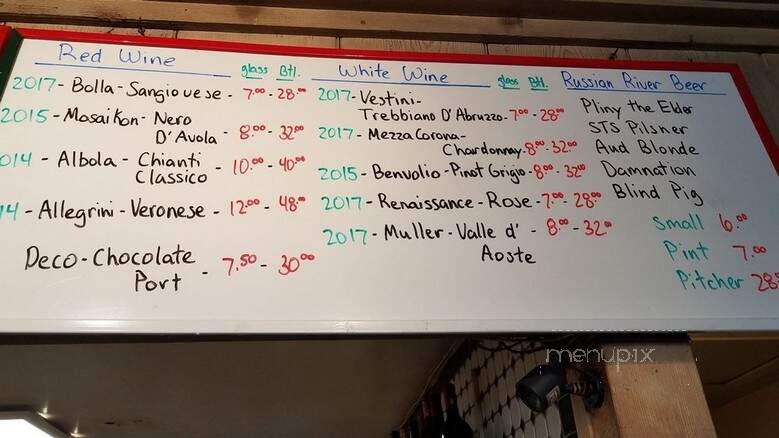 Red Wine
glass Btl.
2017 - Bolla - Sangiovese - 7.00 - 28.00
2015 - Mosaikon - Nero
D'Avola - 8.00 - 32.00
014 - Albola - Chianti
Classico - 10.00 - 40.00
14 - Allegrini - Veronese - 12.00 - 48.00
Deco - Chocolate
Port - 7.50 - 30.00
White Wine
glass Btl.
2017 - Vestini -
Trebbiano D'Abruzzo - 7.00 - 28.00
2017 - MezzaCorona -
Chardonnay - 8.00 - 32.00
2015 - Benvolio - Pinot Grigio - 8.00 - 32.00
2017 - Renaissance - Rose - 7.00 - 28.00
2017 - Muller - Valle d' - 8.00 - 32.00
Aoste
Russian River Beer
Pliny the Elder
STS Pilsner
Aud Blonde
Damnation
Blind Pig
Small 6.00
Pint 7.00
Pitcher 28
menupix